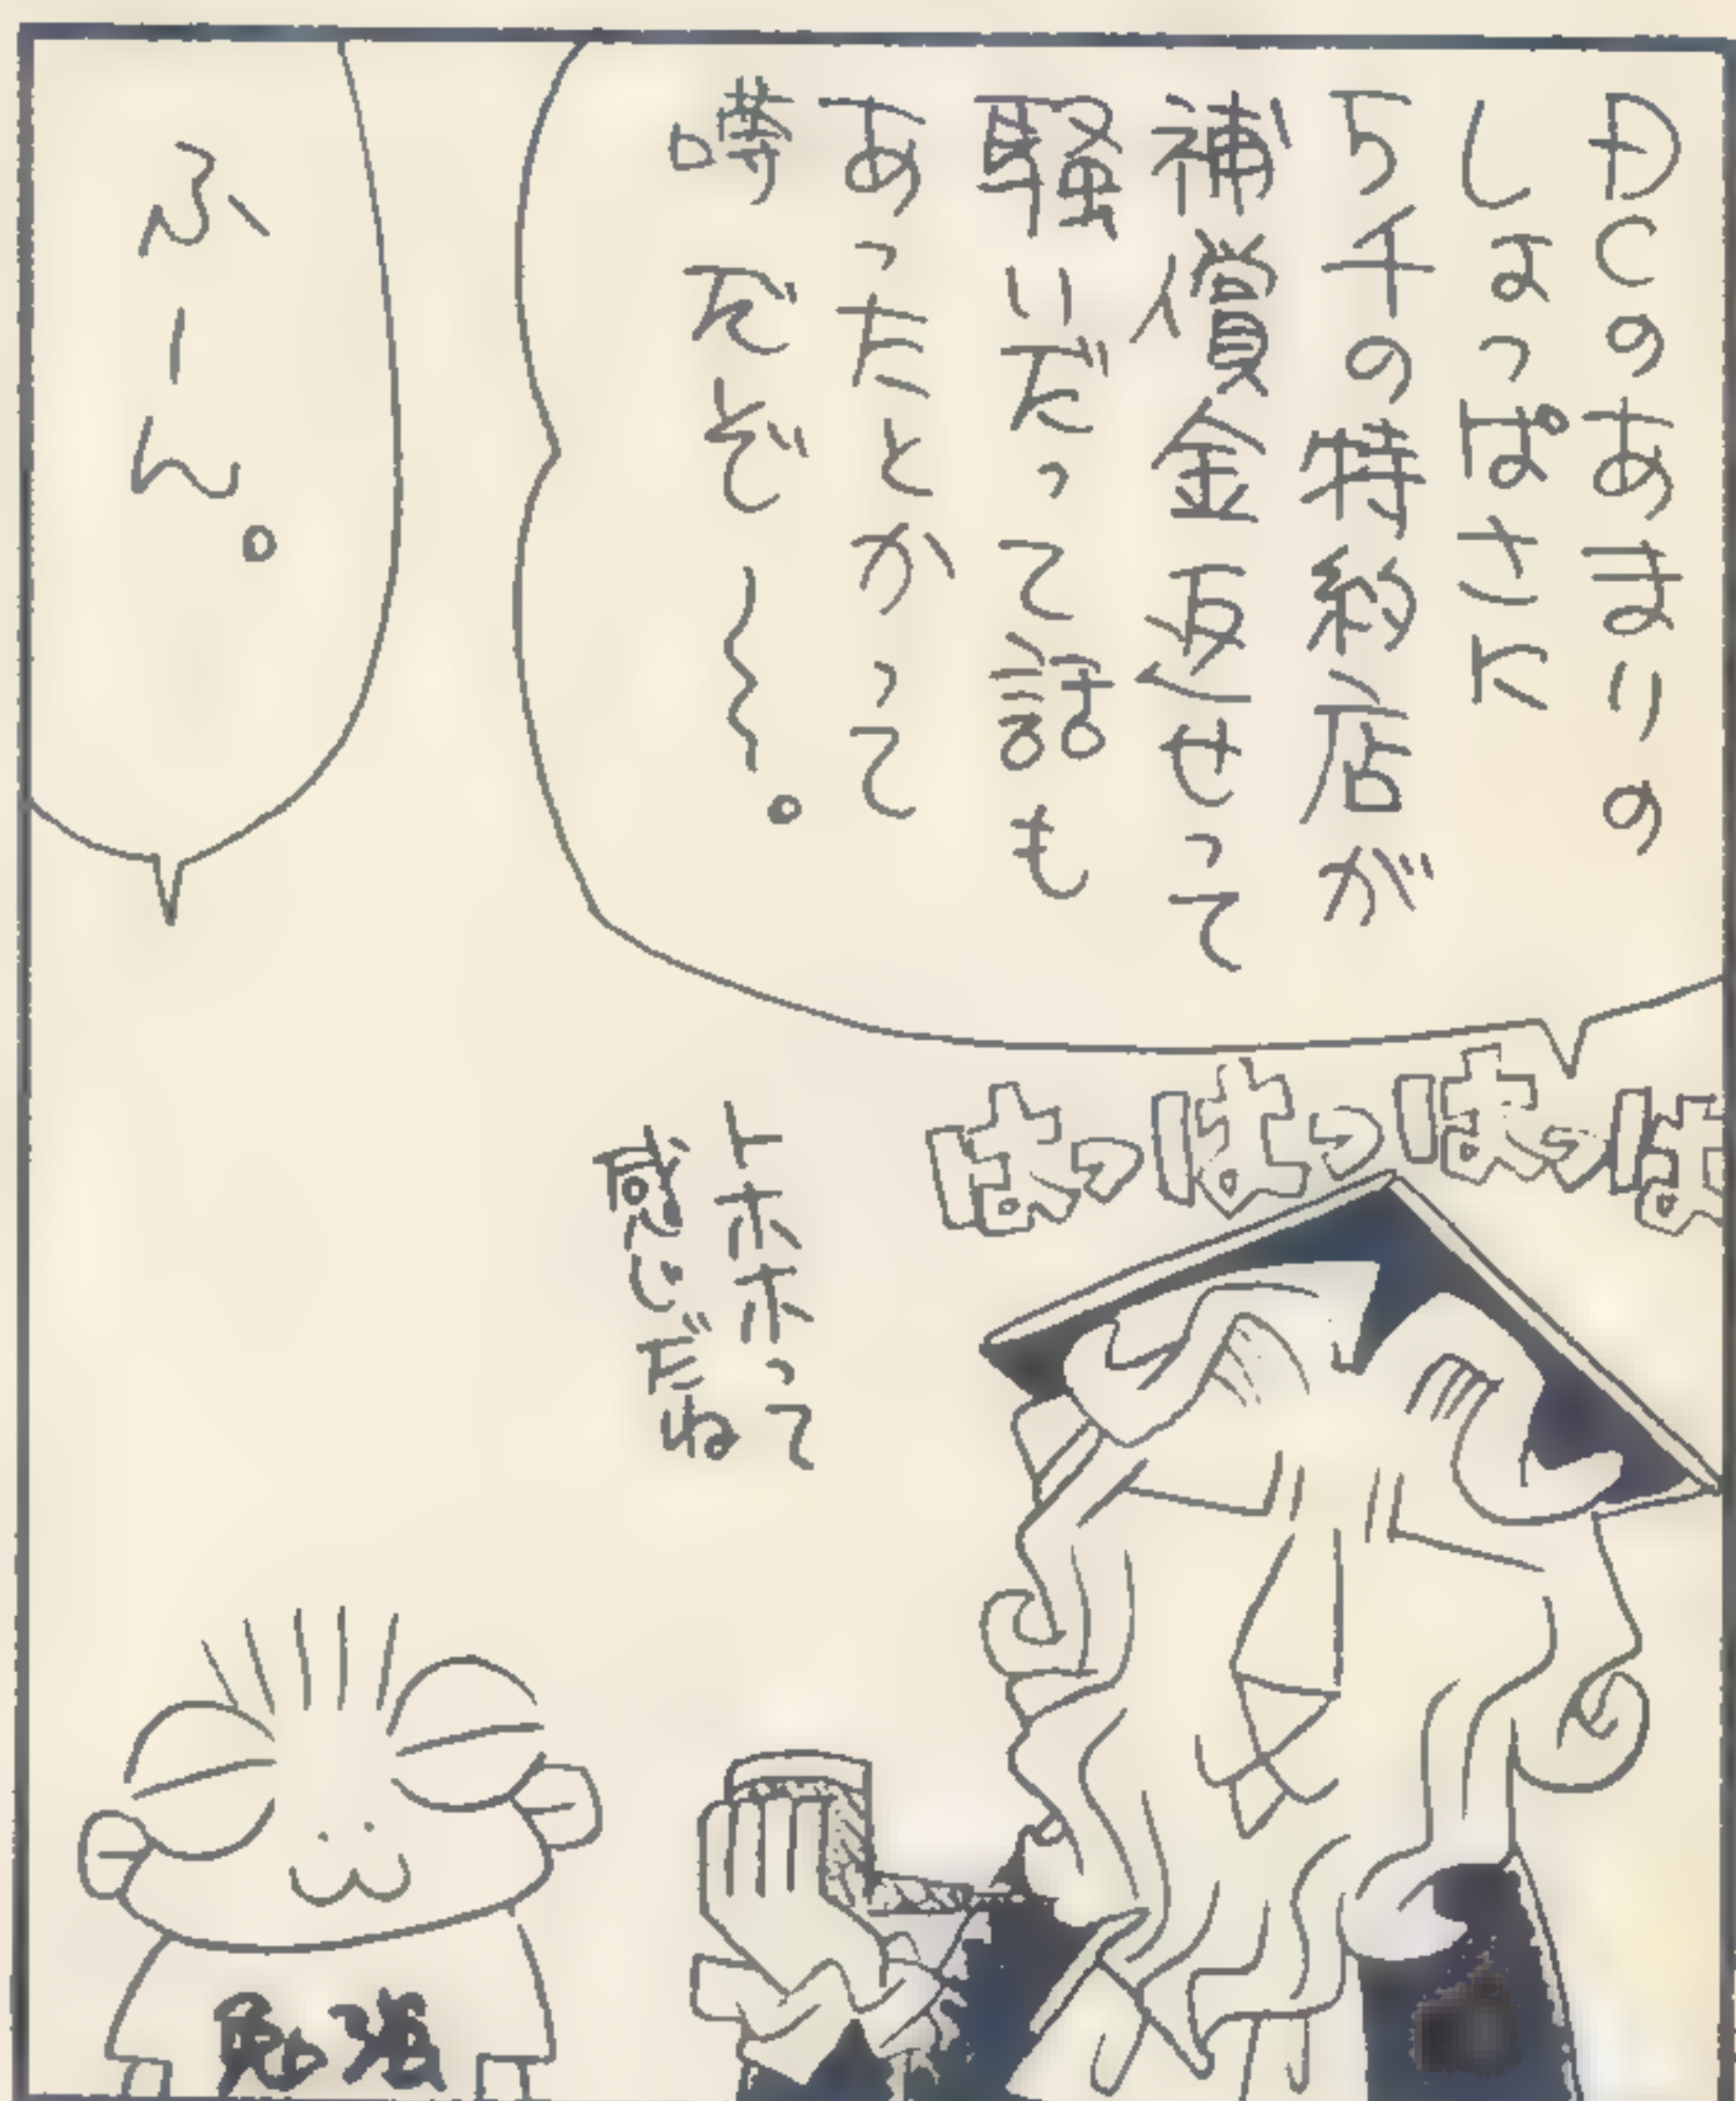 DCのあまりの
しょっぱさに
5千の特約店が
補償金返せって
騒いだって話も
あったとかって
噂だぞ〜。
ふーん。
はっはっはっは
トホホって
感じだね
勉強